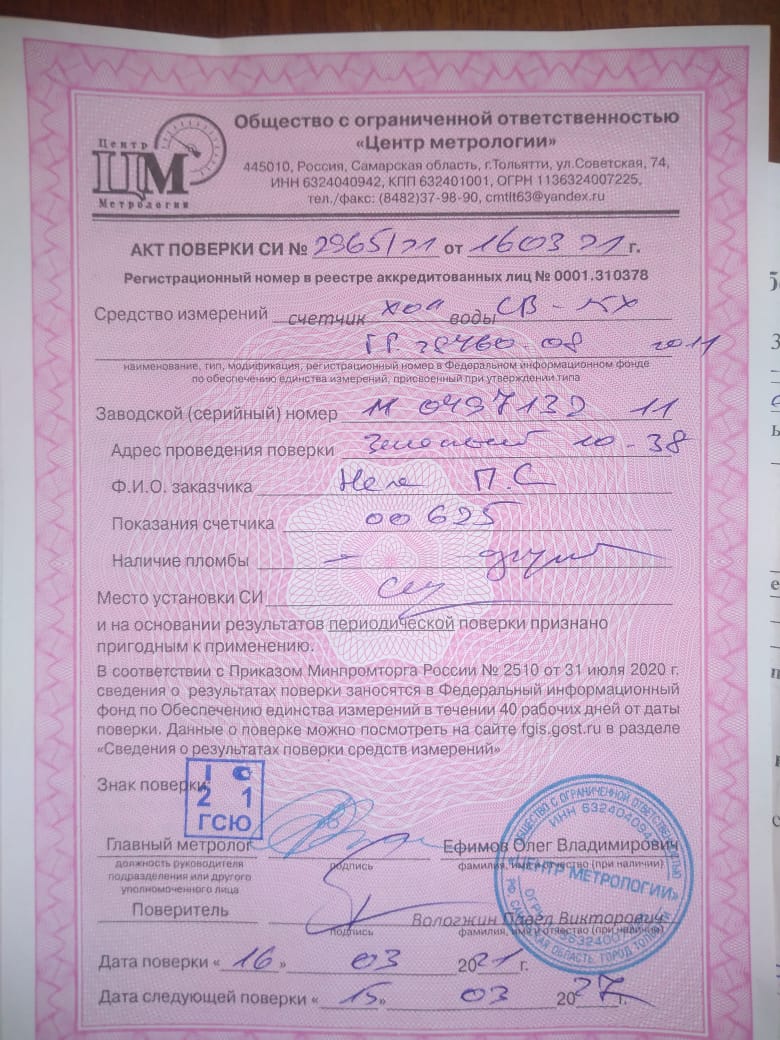 Центр
ЦМ
Метрологии
Общество с ограниченной ответственностью
«Центр метрологии»
445010, Россия, Самарская область, г.Тольятти, ул.Советская, 74,
ИНН 6324040942, КПП 632401001, ОГРН 1136324007225,
тел./факс: (8482)37-98-90, cmtlt63@yandex.ru
АКТ ПОВЕРКИ СИ № 2965/21 от 16 03 21 г.
Регистрационный номер в реестре аккредитованных лиц № 0001.310378
Средство измерений счетчик хол воды СВ-15Х
ГР 28460-08 2011
наименование, тип, модификация, регистрационный номер в Федеральном информационном фонде
по обеспечению единства измерений, присвоенный при утверждении типа
Заводской (серийный) номер 11
Адрес проведения поверки 10-38
Ф.И.О. заказчика П.С
Показания счетчика 00625
Наличие пломбы -
Место установки СИ
и на основании результатов периодической поверки признано
пригодным к применению.
В соответствии с Приказом Минпромторга России № 2510 от 31 июля 2020 г.
сведения о результатах поверки заносятся в Федеральный информационный
фонд по Обеспечению единства измерений в течении 40 рабочих дней от даты
поверки. Данные о поверке можно посмотреть на сайте fgis.gost.ru в разделе
«Сведения о результатах поверки средств измерений»
Знак поверки:
21
ГСЮ
Главный метролог Ефимов Олег Владимирович
должность руководителя подпись фамилия, имя и отчество (при наличии)
подразделения или другого
уполномоченного лица
Поверитель Вологжин Павел Викторович
подпись фамилия, имя и отчество (при наличии)
ОБЩЕСТВО С ОГРАНИЧЕННОЙ ОТВЕТСТВЕННОСТЬЮ
ИНН 6324040942
«ЦЕНТР МЕТРОЛОГИИ»
Дата поверки «16» 03 2021г.
Дата следующей поверки «15» 03 2027г.